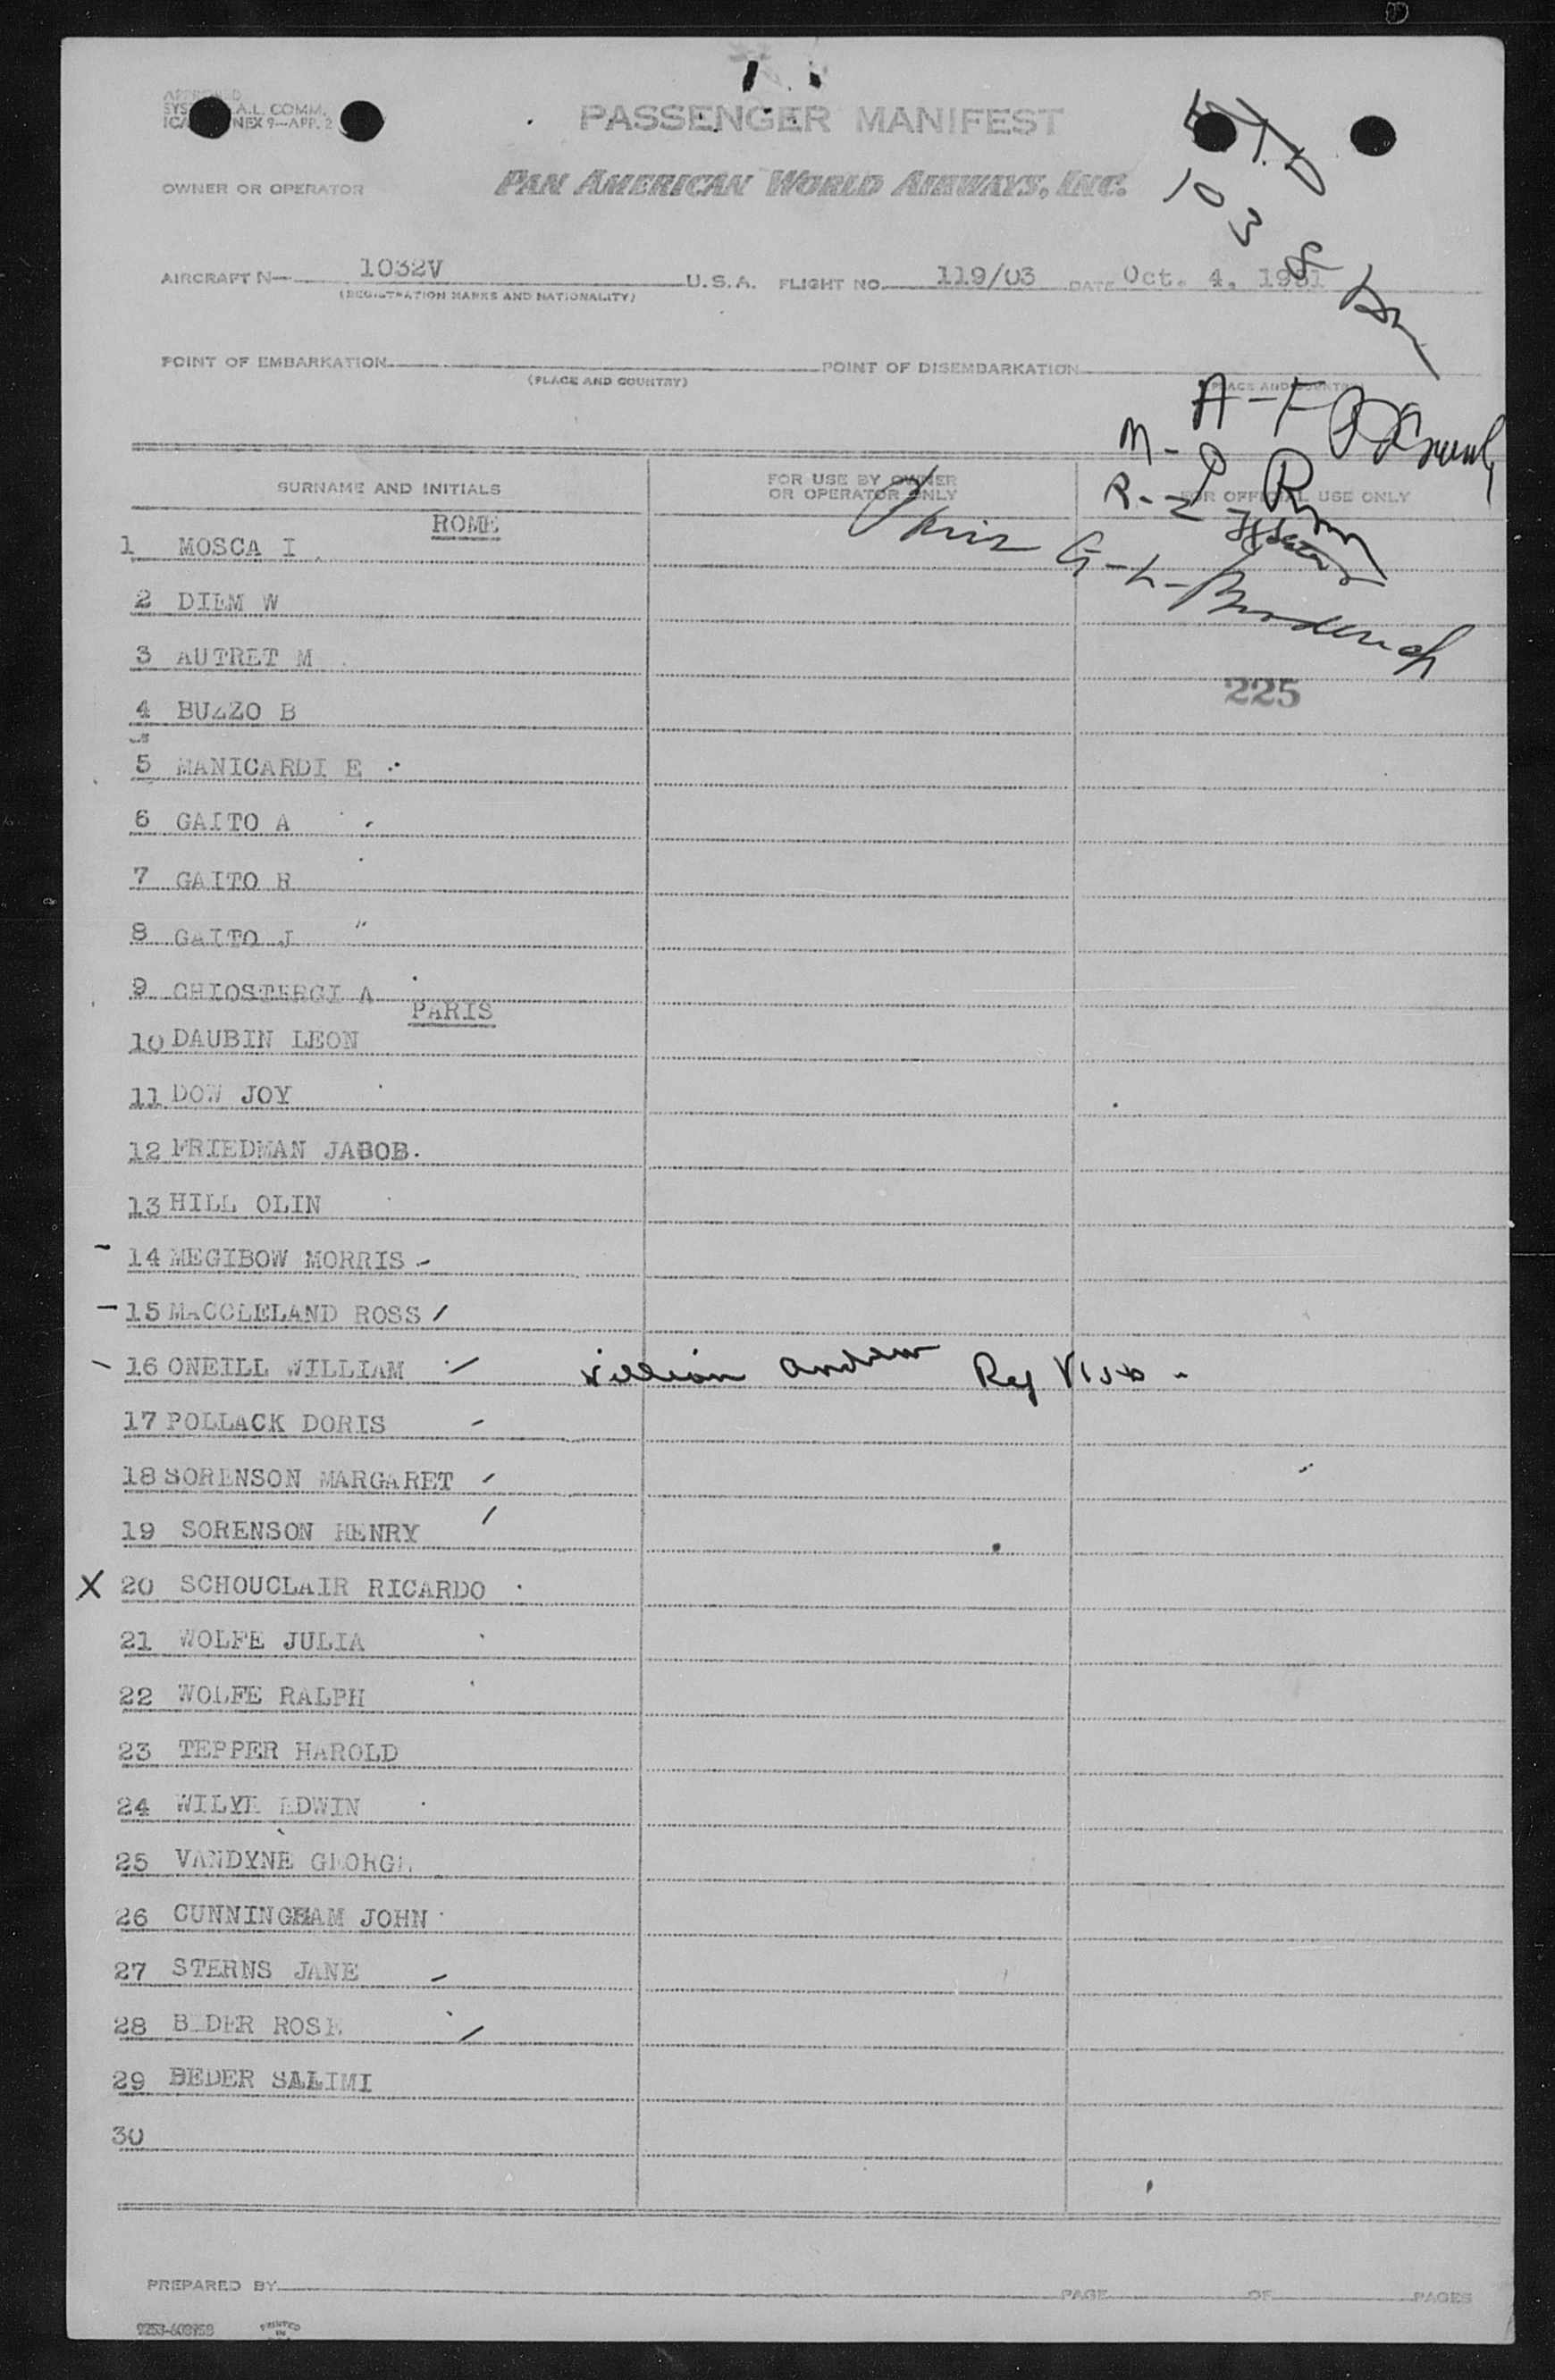 PASSENGER MANIFEST
OWNER OR OPERATOR PAN AMERICAN WORLD AIRWAYS, INC.
AIRCRAFT N— 1032V U.S.A. FLIGHT NO. 119/03 DATE Oct. 4, 1951
(REGISTRATION MARKS AND NATIONALITY)
POINT OF EMBARKATION POINT OF DISEMBARKATION
(PLACE AND COUNTRY)
A-F
M-
R-Z
G-L-
SURNAME AND INITIALS FOR USE BY OWNER OR OPERATOR ONLY FOR OFFICIAL USE ONLY
ROME
1 MOSCA I
2 DIEM W
3 AUTRET M
225
4 BUZZO B
5 MANICARDI E
6 GAITO A
7 GAITO R
8 GAITO J
9 CHIOSTERGI A
PARIS
10 DAUBIN LEON
11 DOW JOY
12 FRIEDMAN JABOB.
13 HILL OLIN
- 14 MEGIBOW MORRIS -
- 15 MACCLELAND ROSS /
- 16 ONEILL WILLIAM / William Andrew Rej Visa -
17 POLLACK DORIS -
18 SORENSON MARGARET /
19 SORENSON HENRY /
X 20 SCHOUCLAIR RICARDO
21 WOLFE JULIA
22 WOLFE RALPH
23 TEPPER HAROLD
24 WILYE EDWIN
25 VANDYNE GEORGE
26 CUNNINGHAM JOHN
27 STERNS JANE -
28 BEDER ROSE /
29 BEDER SALIMI
30
PREPARED BY PAGE OF PAGES
PRINTED IN